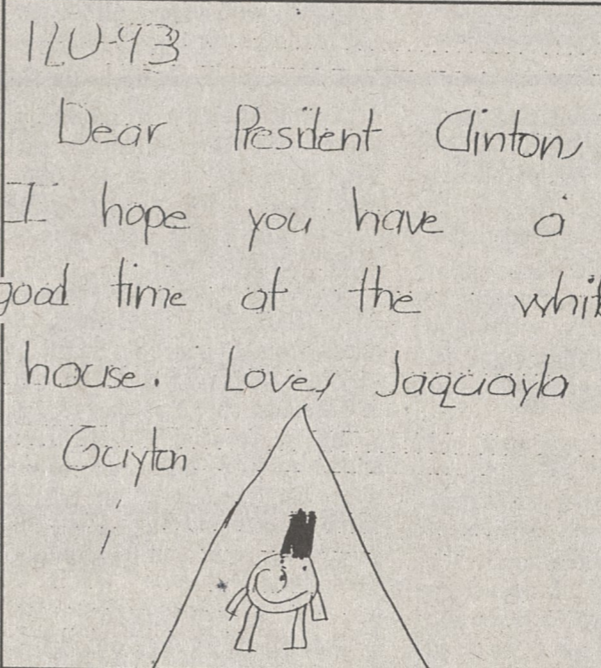 Dear President Clinton,
I hope you have a
good time at the whit
house. Love, Jaquayla
Guyton